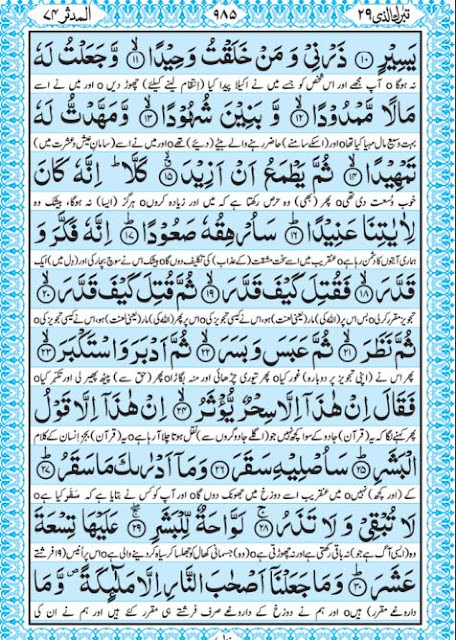 تبٰرک الذی ۲۹ ۹۸۵ المدثر ۷۴
يَسِيْرٍ ۝۱۰ ذَرْنِيْ وَ مَنْ خَلَقْتُ وَحِيْدًا ۝۱۱ وَّ جَعَلْتُ لَهٗ
نہ ہوگا o آپ مجھے اور اس شخص کو جسے میں نے اکیلا پیدا کیا (انتقام لینے کیلئے) چھوڑ دیں o اور میں نے اسے
مَالًا مَّمْدُوْدًا ۝۱۲ وَّ بَنِيْنَ شُهُوْدًا ۝۱۳ وَّ مَهَّدْتُّ لَهٗ
بہت وسیع مال مہیا کیا تھا o اور (اسکے سامنے) حاضر رہنے والے بیٹے (دیئے) تھے o اور میں نے اسے (سامانِ عیش و عشرت میں)
تَمْهِيْدًا ۝۱۴ ثُمَّ يَطْمَعُ اَنْ اَزِيْدَ ۝۱۵ كَلَّا ؕ اِنَّهٗ كَانَ
خوب وسعت دی تھی o پھر (بھی) وہ حرص رکھتا ہے کہ میں اور زیادہ کروں o ہرگز (ایسا) نہ ہوگا، بیشک وہ
لِاٰيٰتِنَا عَنِيْدًا ۝۱۶ سَاُرْهِقُهٗ صَعُوْدًا ۝۱۷ اِنَّهٗ فَكَّرَ وَ
ہماری آیتوں کا دشمن رہا ہے o عنقریب میں اسے سخت مشقت (کے عذاب) کی تکلیف دوں گا o بیشک اس نے سوچ بچار کی اور (دل میں) ایک
قَدَّرَ ۝۱۸ فَقُتِلَ كَيْفَ قَدَّرَ ۝۱۹ ثُمَّ قُتِلَ كَيْفَ قَدَّرَ ۝۲۰
تجویز مقرر کر لی o بس اس پر (اللہ کی) مار (یعنی لعنت) ہو، اس نے کیسی تجویز کی o اس پر پھر (اللہ کی) مار (یعنی لعنت) ہو، اس نے کیسی تجویز کی o
ثُمَّ نَظَرَ ۝۲۱ ثُمَّ عَبَسَ وَ بَسَرَ ۝۲۲ ثُمَّ اَدْبَرَ وَ اسْتَكْبَرَ ۝۲۳
پھر اس نے (اپنی تجویز پر دوبارہ) غور کیا o پھر تیوری چڑھائی اور منہ بگاڑا o پھر (حق سے) پیٹھ پھیر لی اور تکبر کیا o
فَقَالَ اِنْ هٰذَاۤ اِلَّا سِحْرٌ يُّؤْثَرُ ۝۲۴ اِنْ هٰذَاۤ اِلَّا قَوْلُ
پھر کہنے لگا کہ یہ (قرآن) جادو کے سوا کچھ نہیں جو (اگلے جادوگروں سے) نقل ہوتا چلا آ رہا ہے o یہ (قرآن) بجز انسان کے کلام
الْبَشَرِ ۝۲۵ سَاُصْلِيْهِ سَقَرَ ۝۲۶ وَ مَاۤ اَدْرٰىكَ مَا سَقَرُ ۝۲۷
کے (اور کچھ) نہیں o میں عنقریب اسے دوزخ میں جھونک دوں گا o اور آپ کو کس نے بتایا ہے کہ سَقَر کیا ہے o
لَا تُبْقِيْ وَ لَا تَذَرُ ۝۲۸ لَوَّاحَةٌ لِّلْبَشَرِ ۝۲۹ عَلَيْهَا تِسْعَةَ
وہ (ایسی آگ ہے جو) نہ باقی رکھتی ہے اور نہ چھوڑتی ہے o (وہ) جسمانی کھال کو جھلسا کر سیاہ کر دینے والی ہے o اس پر اُنیس (۱۹ فرشتے
عَشَرَ ۝۳۰ وَ مَا جَعَلْنَاۤ اَصْحٰبَ النَّارِ اِلَّا مَلٰٓئِكَةً ۪ وَّ مَا
داروغے مقرر) ہیں o اور ہم نے دوزخ کے داروغے صرف فرشتے ہی مقرر کئے ہیں اور ہم نے ان کی